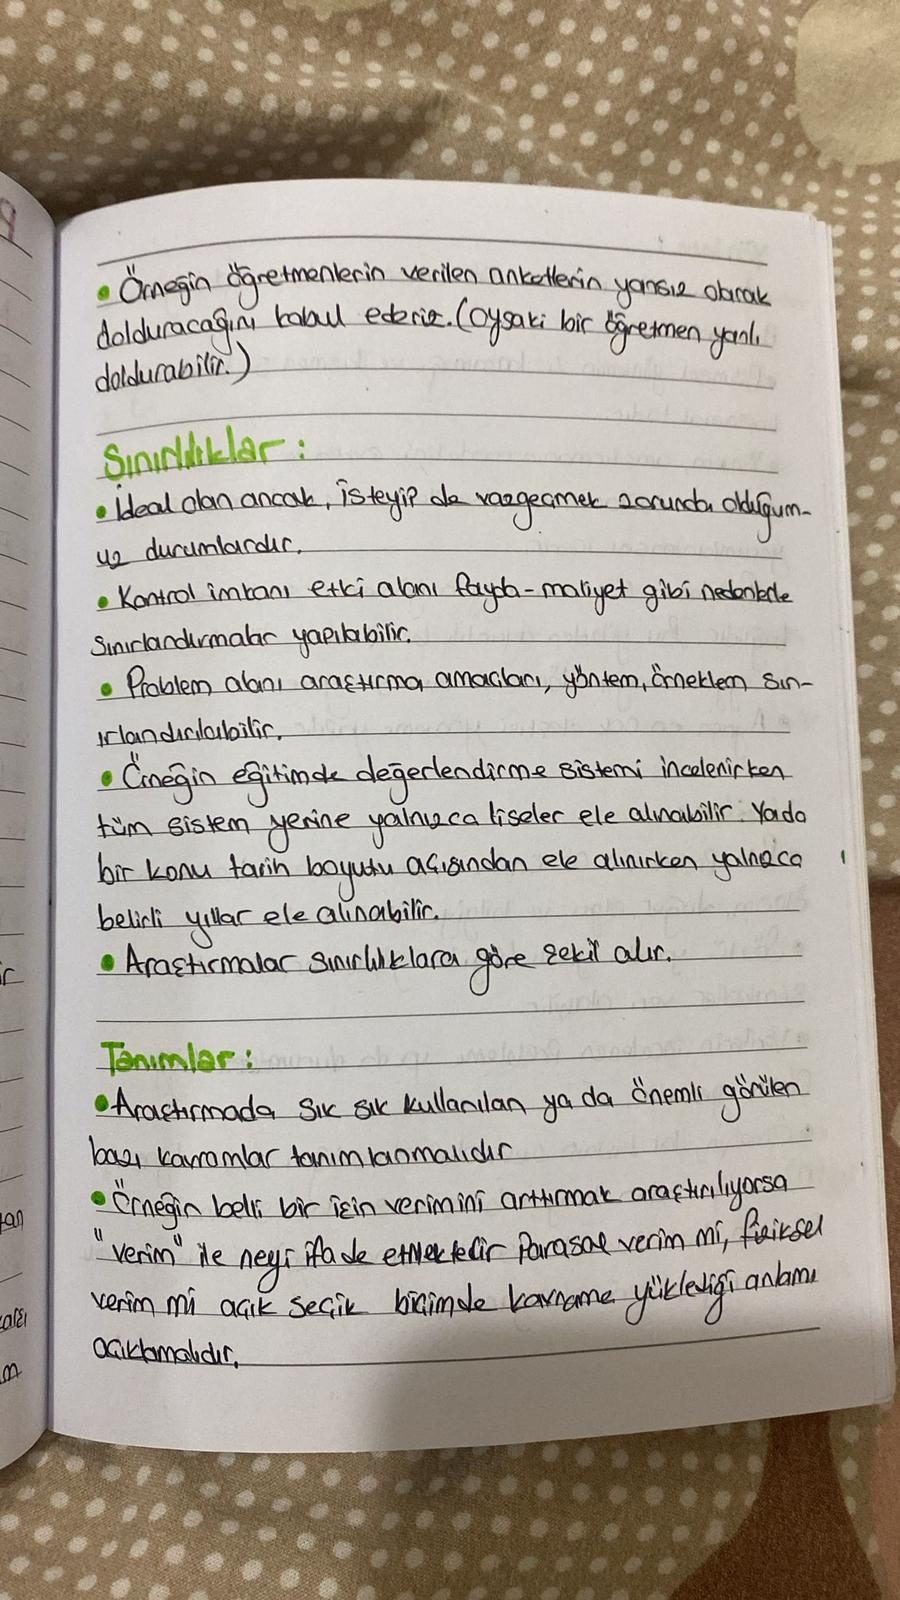 • Örneğin öğretmenlerin verilen anketlerin yansız olarak
dolduracağını kabul ederiz. (oysaki bir öğretmen yanlı
doldurabilir.)
Sınırlılıklar :
• İdeal olan ancak, isteyip de vazgeçmek zorunda olduğum-
uz durumlardır.
• Kontrol imkanı etki alanı fayda-maliyet gibi nedenlerle
sınırlandırmalar yapılabilir.
• Problem alanı araştırma amaçları, yöntem, örneklem sın-
ırlandırılabilir.
• Örneğin eğitimde değerlendirme sistemi incelenirken
tüm sistem yerine yalnızca liseler ele alınabilir. Yada
bir konu tarih boyutu açısından ele alınırken yalnızca
belirli yıllar ele alınabilir.
• Araştırmalar sınırlılıklara göre şekil alır.
Tanımlar :
• Araştırmada sık sık kullanılan ya da önemli görülen
bazı kavramlar tanımlanmalıdır
• Örneğin belli bir işin verimini arttırmak araştırılıyorsa
"verim" ile neyi ifade etmektedir Parasal verim mi, fiziksel
verim mi açık seçik biçimde kavrama yüklediği anlamı
açıklamalıdır.